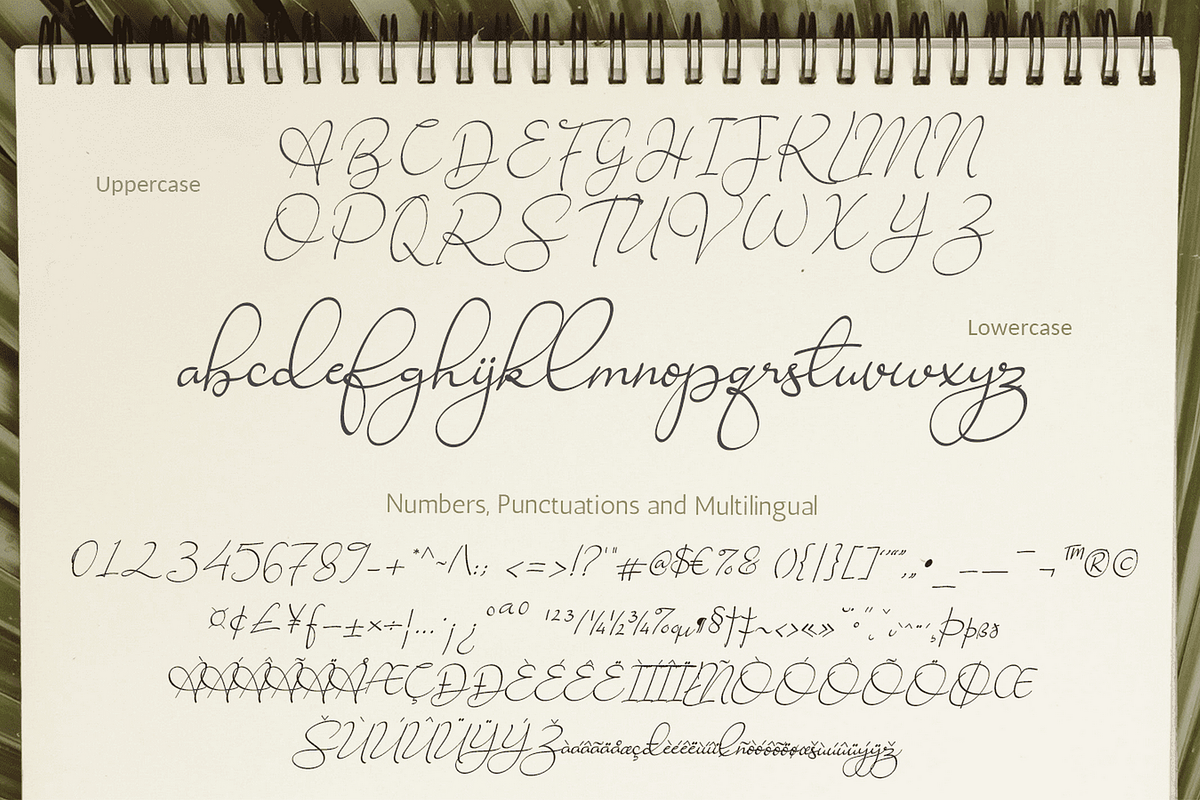 Uppercase
ABCDEFGHIJKLMN
OPQRSTUVWXYZ
Lowercase
abcdefghijkllmnopqrstuvwxyz
Numbers, Punctuations and Multilingual
0123456789-+*^~/\:;<=>!?'"#@$€%&(){|}[]''"",„•_–—¯¬™®©
¤¢£¥ƒ−±×÷¦…¡¿ºªº¹²³/¼½¾‰µ¶§†‡~‹›«»
ÀÁÂÃÄÅÆÇÐĐÈÉÊËÌÍÎÏŁÑÒÓÔÕÖØŒ
ŠÙÚÛÜŸÝŽàáâãäåæçdèéêëìíîïlñòóôõöøœšùúûüýÿž